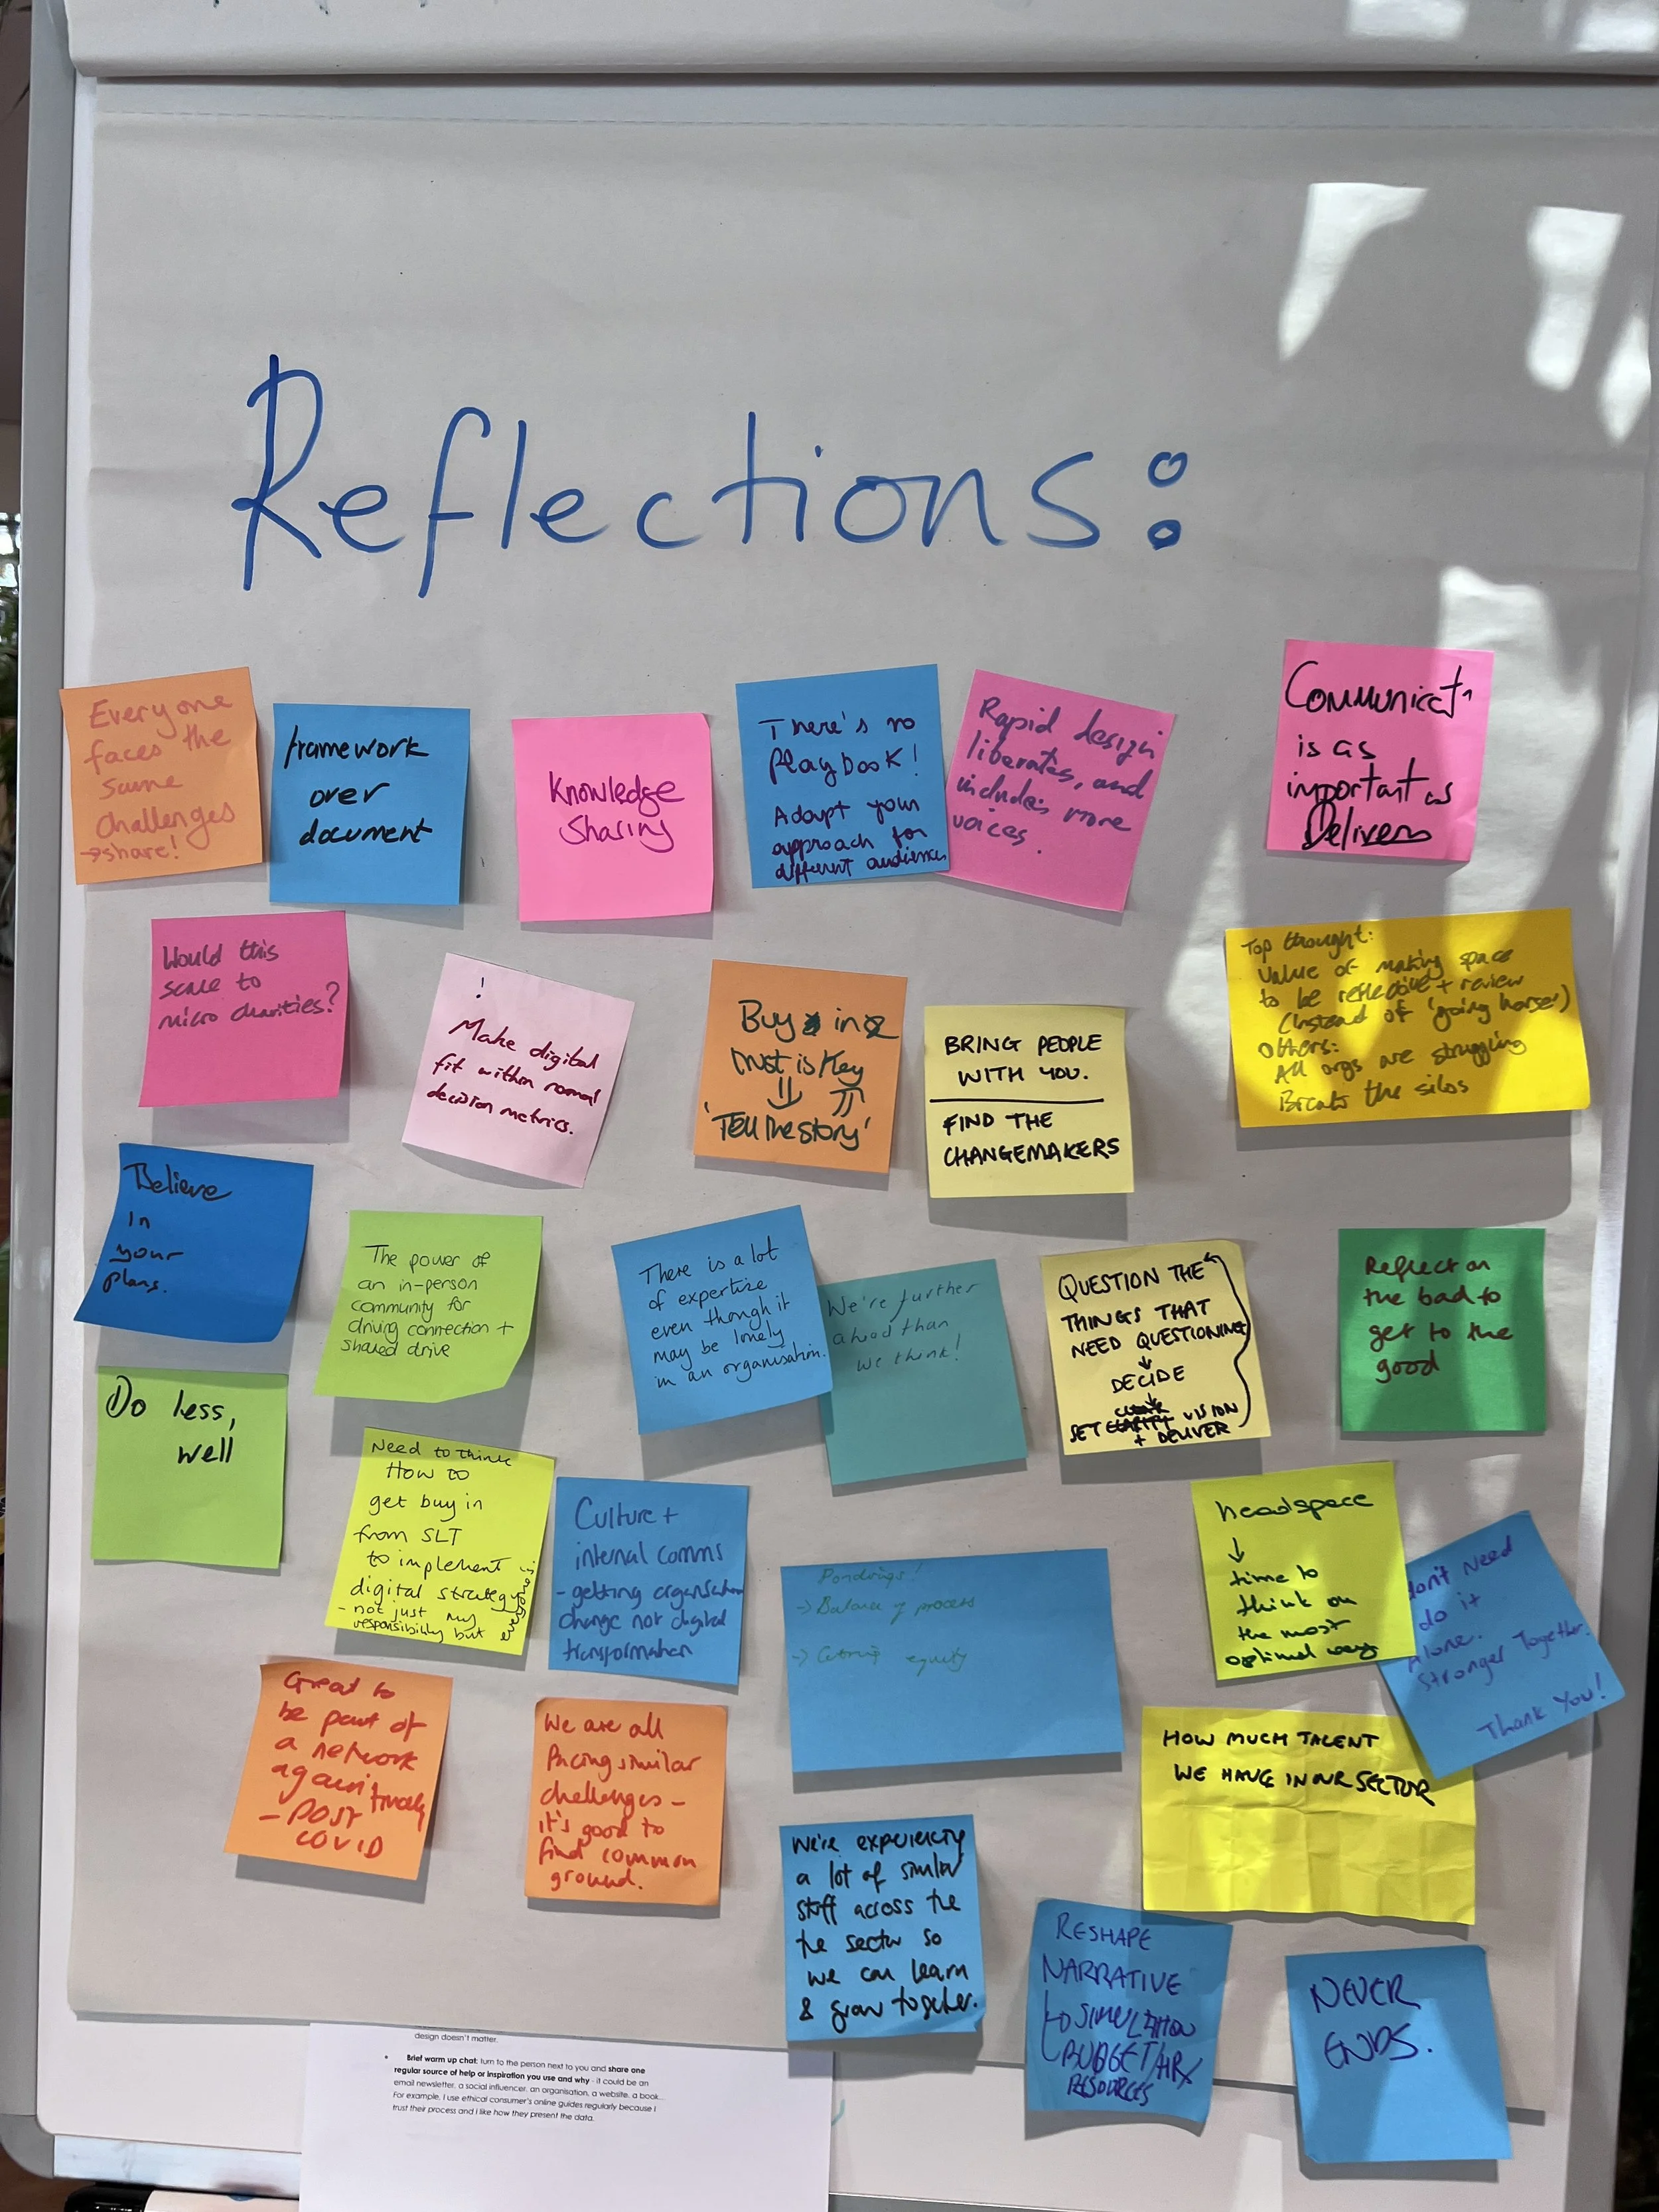 Reflections:
Everyone
faces the
same
challenges
→share!
framework
over
document
Knowledge
Sharing
There's no
Playbook!
Adapt your
approach for
different audiences
Rapid design
liberates, and
includes more
voices.
Communicatn
is as
important as
Would this
scale to
micro charities?
!
Make digital
fit within normal
decision metrics.
Buy in
trust is key
'Tell the story'
BRING PEOPLE
WITH YOU.
FIND THE
CHANGEMAKERS
Top thought:
Value of making space
to be reflective + review
(Instead of 'going horse')
Others:
All orgs are struggling
Break the silos
Believe
in
your
plans.
The power of
an in-person
community for
driving connection +
shared drive
There is a lot
of expertise
even though it
may be lonely
in an organisation.
We're further
ahead than
we think!
QUESTION THE
THINGS THAT
NEED QUESTIONING
↓
DECIDE
↓
SET VISION
+ DELIVER
Reflect on
the bad to
get to the
good
Do less,
well
Need to think
How to
get buy in
from SLT
to implement
digital strategy
- not just my
responsibility but everyone's
Culture +
internal comms
- getting organisation
change not digital
transformation
Pondrings!
→ Balance of process
→ equity
headspace
↓
time to
think on
the most
optimal way
don't need
do it
alone.
Stronger Together.
Thank You!
Great to
be part of
a network
again
- POST
COVID
We are all
facing similar
challenges -
it's good to
find common
ground.
HOW MUCH TALENT
WE HAVE IN OUR SECTOR
We're experiencing
a lot of similar
stuff across the
the sector so
we can learn
& grow together.
RESHAPE
NARRATIVE
BUDGET/HR
RESOURCES
NEVER
ENDS.
design doesn't matter.
• Brief warm up chat: turn to the person next to you and share one
regular source of help or inspiration you use and why - it could be an
email newsletter, a social influencer, an organisation, a website, a book...
For example, I use ethical consumer's online guides regularly because I
trust their process and I like how they present the data.